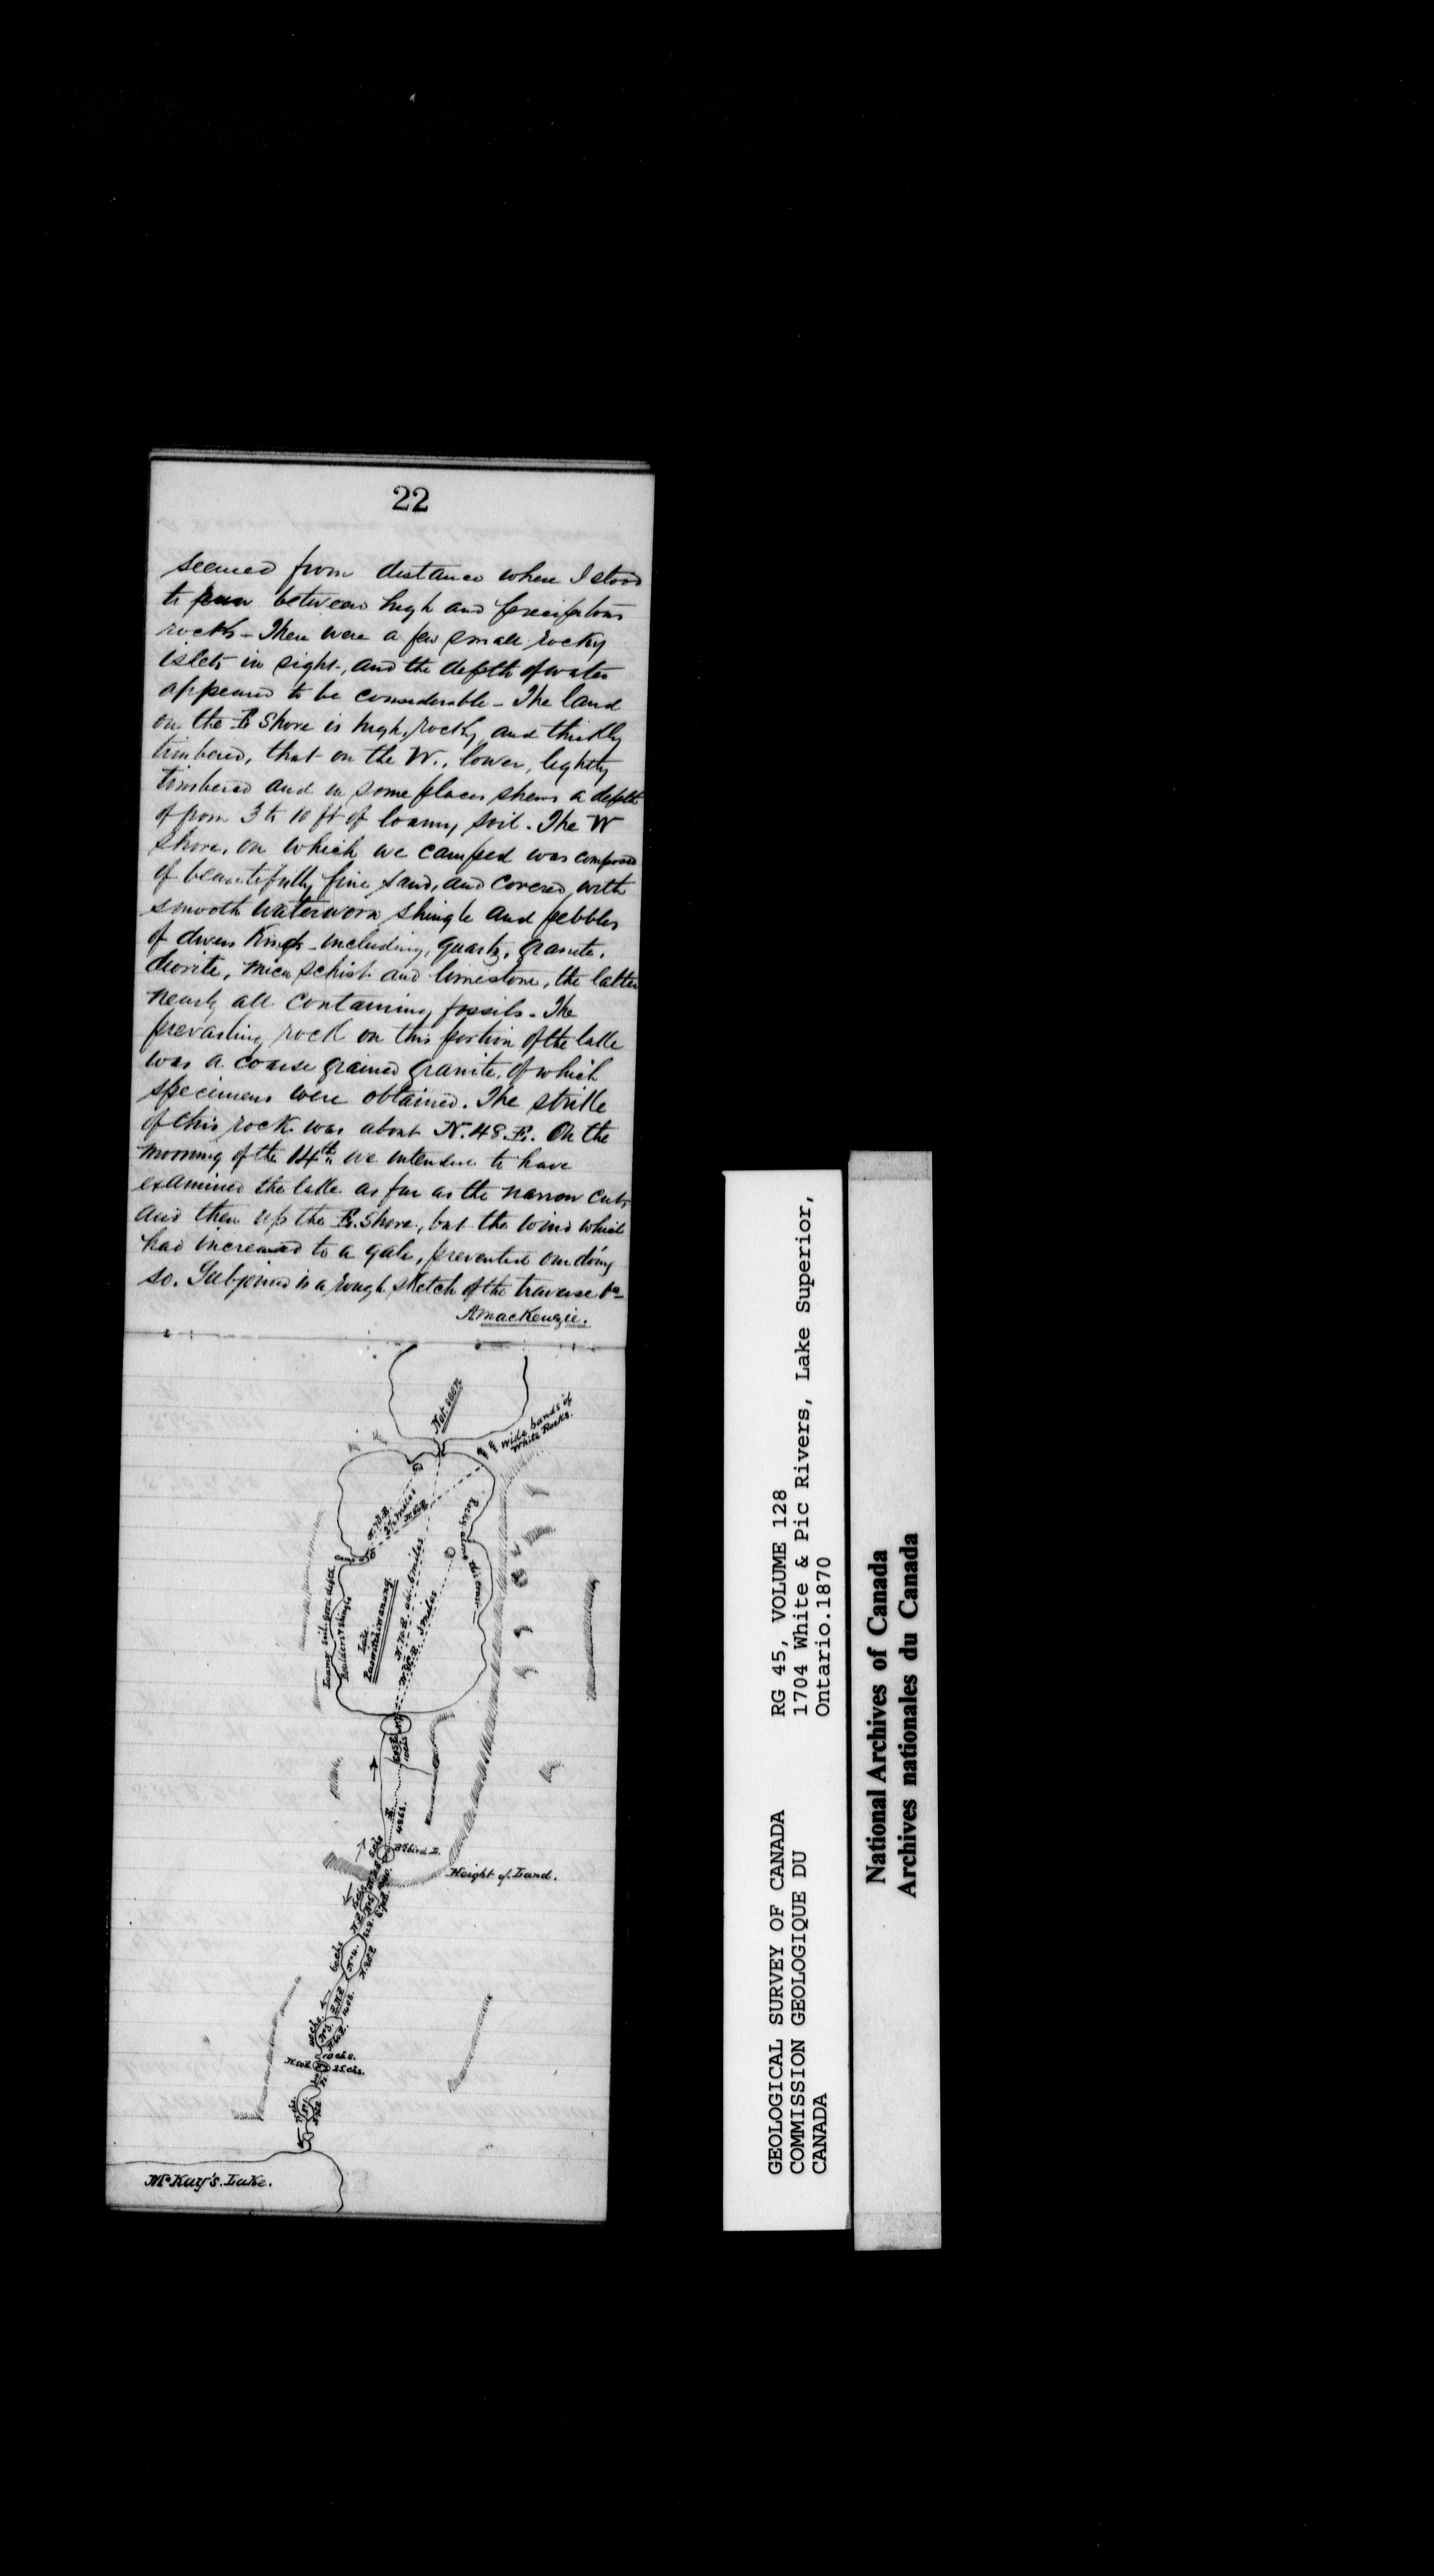 22
seemed from distance where I stood
to run between high and precipitous
rocks – There were a few small rocky
islets in sight, and the depth of water
appeared to be considerable – The land
on the E Shore is high, rocky, and thickly
timbered, that on the W., lower, lightly
timbered and in some places shews a depth
of from 3 to 10 ft of loamy soil. The W
shore, on which we camped was composed
of beautifully fine sand, and covered with
smooth waterworn shingle and pebbles
of divers Kinds – including, quartz, granite,
diorite, mica schist and limestone, the latter
nearly all containing fossils – The
prevailing rock on this portion of the lake
was a coarse grained granite, of which
specimens were obtained. The strike
of this rock was about N. 48. E. On the
morning of the 14th we intended to have
examined the lake as far as the narrow cut,
and then up the E. Shore, but the wind which
had increased to a gale, prevented our doing
so. Subjoined is a rough sketch of the traverse &c
A MacKenzie.
Not seen
Wide bands of
White Rocks.
N. 70. E.
2½ miles
Camp
Rocky
Loamy soil. good depth
Boulders & shingle
Lake
5 miles
48 chs.
Bd bird L.
Height of Land.
No 4.
60 chs
No 3.
10 chs.
25 chs.
McKay's Lake.
RG 45, VOLUME 128
1704 White & Pic Rivers, Lake Superior,
Ontario.1870
GEOLOGICAL SURVEY OF CANADA
COMMISSION GEOLOGIQUE DU
CANADA
National Archives of Canada
Archives nationales du Canada